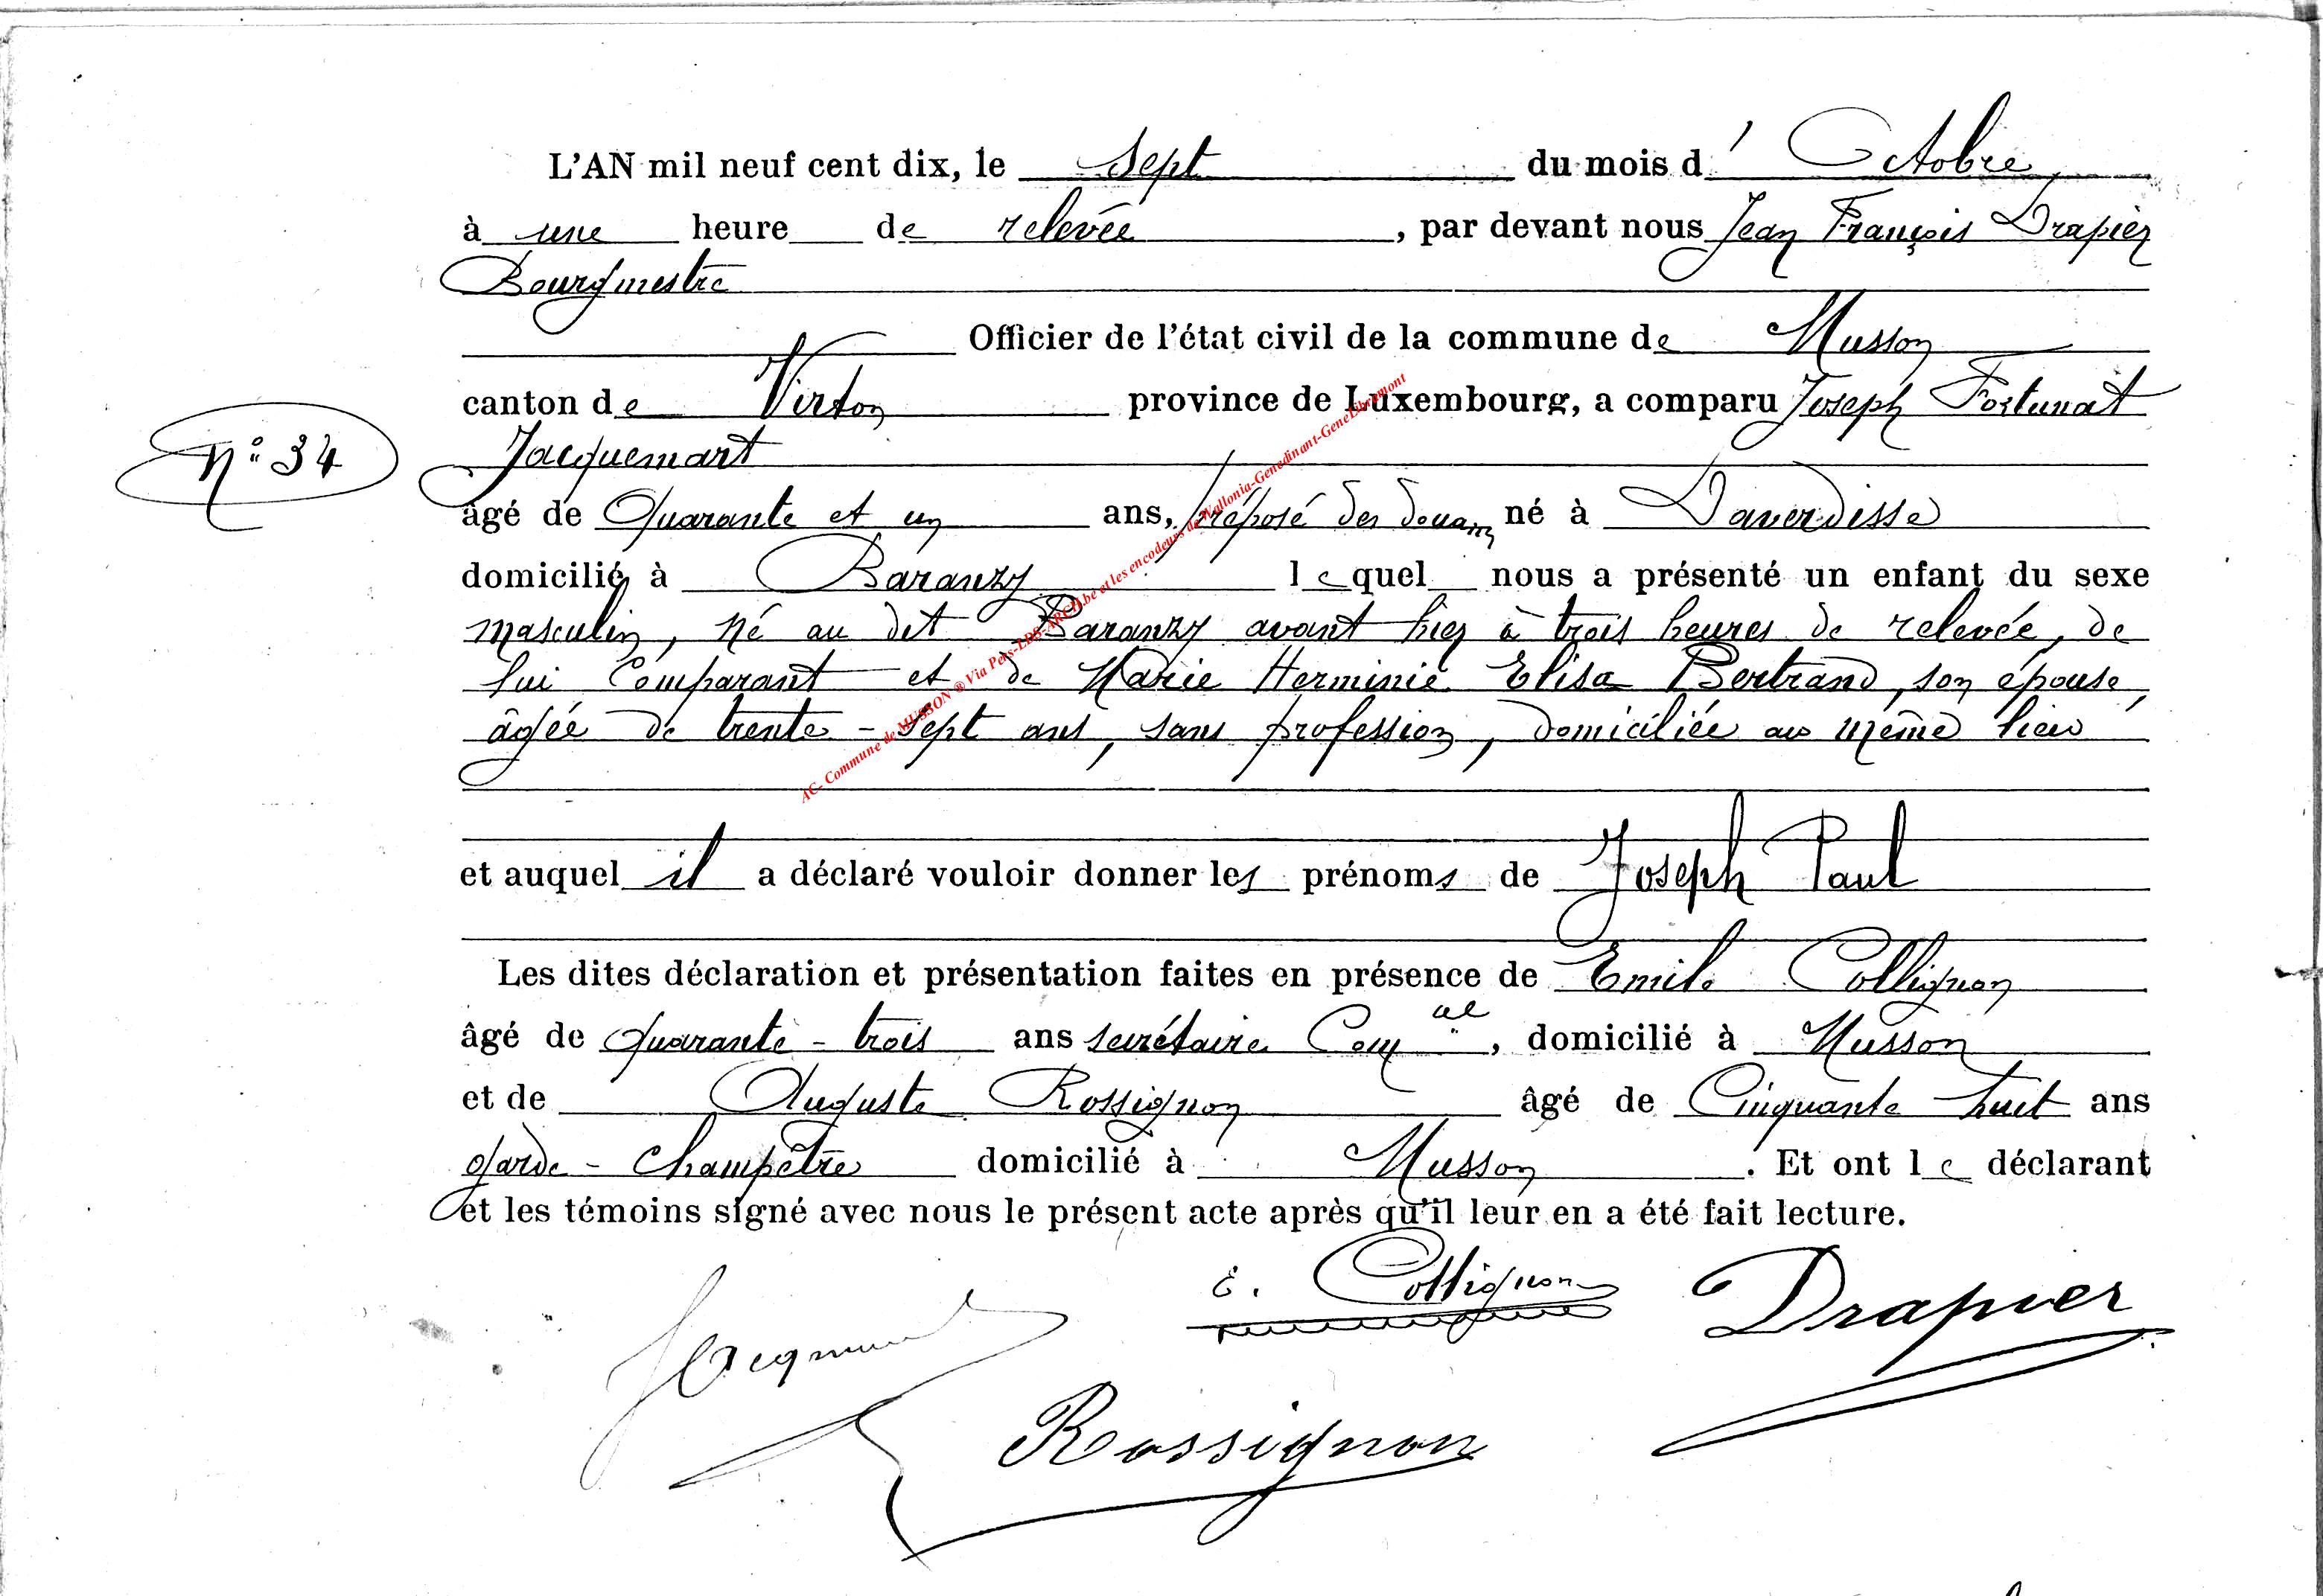 L'AN mil neuf cent dix, le sept du mois d'Octobre
à une heure de relevée, par devant nous Jean François Drapier
Bourgmestre
Officier de l'état civil de la commune de Musson
canton de Virton province de Luxembourg, a comparu Joseph Fortunat
N° 34
Jacquemart
âgé de Quarante et un ans, préposé des douan né à Daverdisse
domicilié à Baranzy lequel nous a présenté un enfant du sexe
masculin, né au dit Baranzy avant hier à trois heures de relevée, de
lui Comparant et de Marie Herminie Elisa Bertrand, son épouse,
âgée de trente-sept ans, sans profession, domiciliée au même lieu
AC- Commune de MUSSON ® Via Pers-LDS-ARCH.be et les encodeurs de Wallonia-Genedinant-GeneLibramont
et auquel il a déclaré vouloir donner les prénoms de Joseph Paul
Les dites déclaration et présentation faites en présence de Emile Collignon
âgé de quarante-trois ans secrétaire Com al, domicilié à Musson
et de Auguste Rossignon âgé de Cinquante huit ans
garde-Champêtre domicilié à Musson. Et ont le déclarant
et les témoins signé avec nous le présent acte après qu'il leur en a été fait lecture.
E. Collignon Drapier
Rossignon